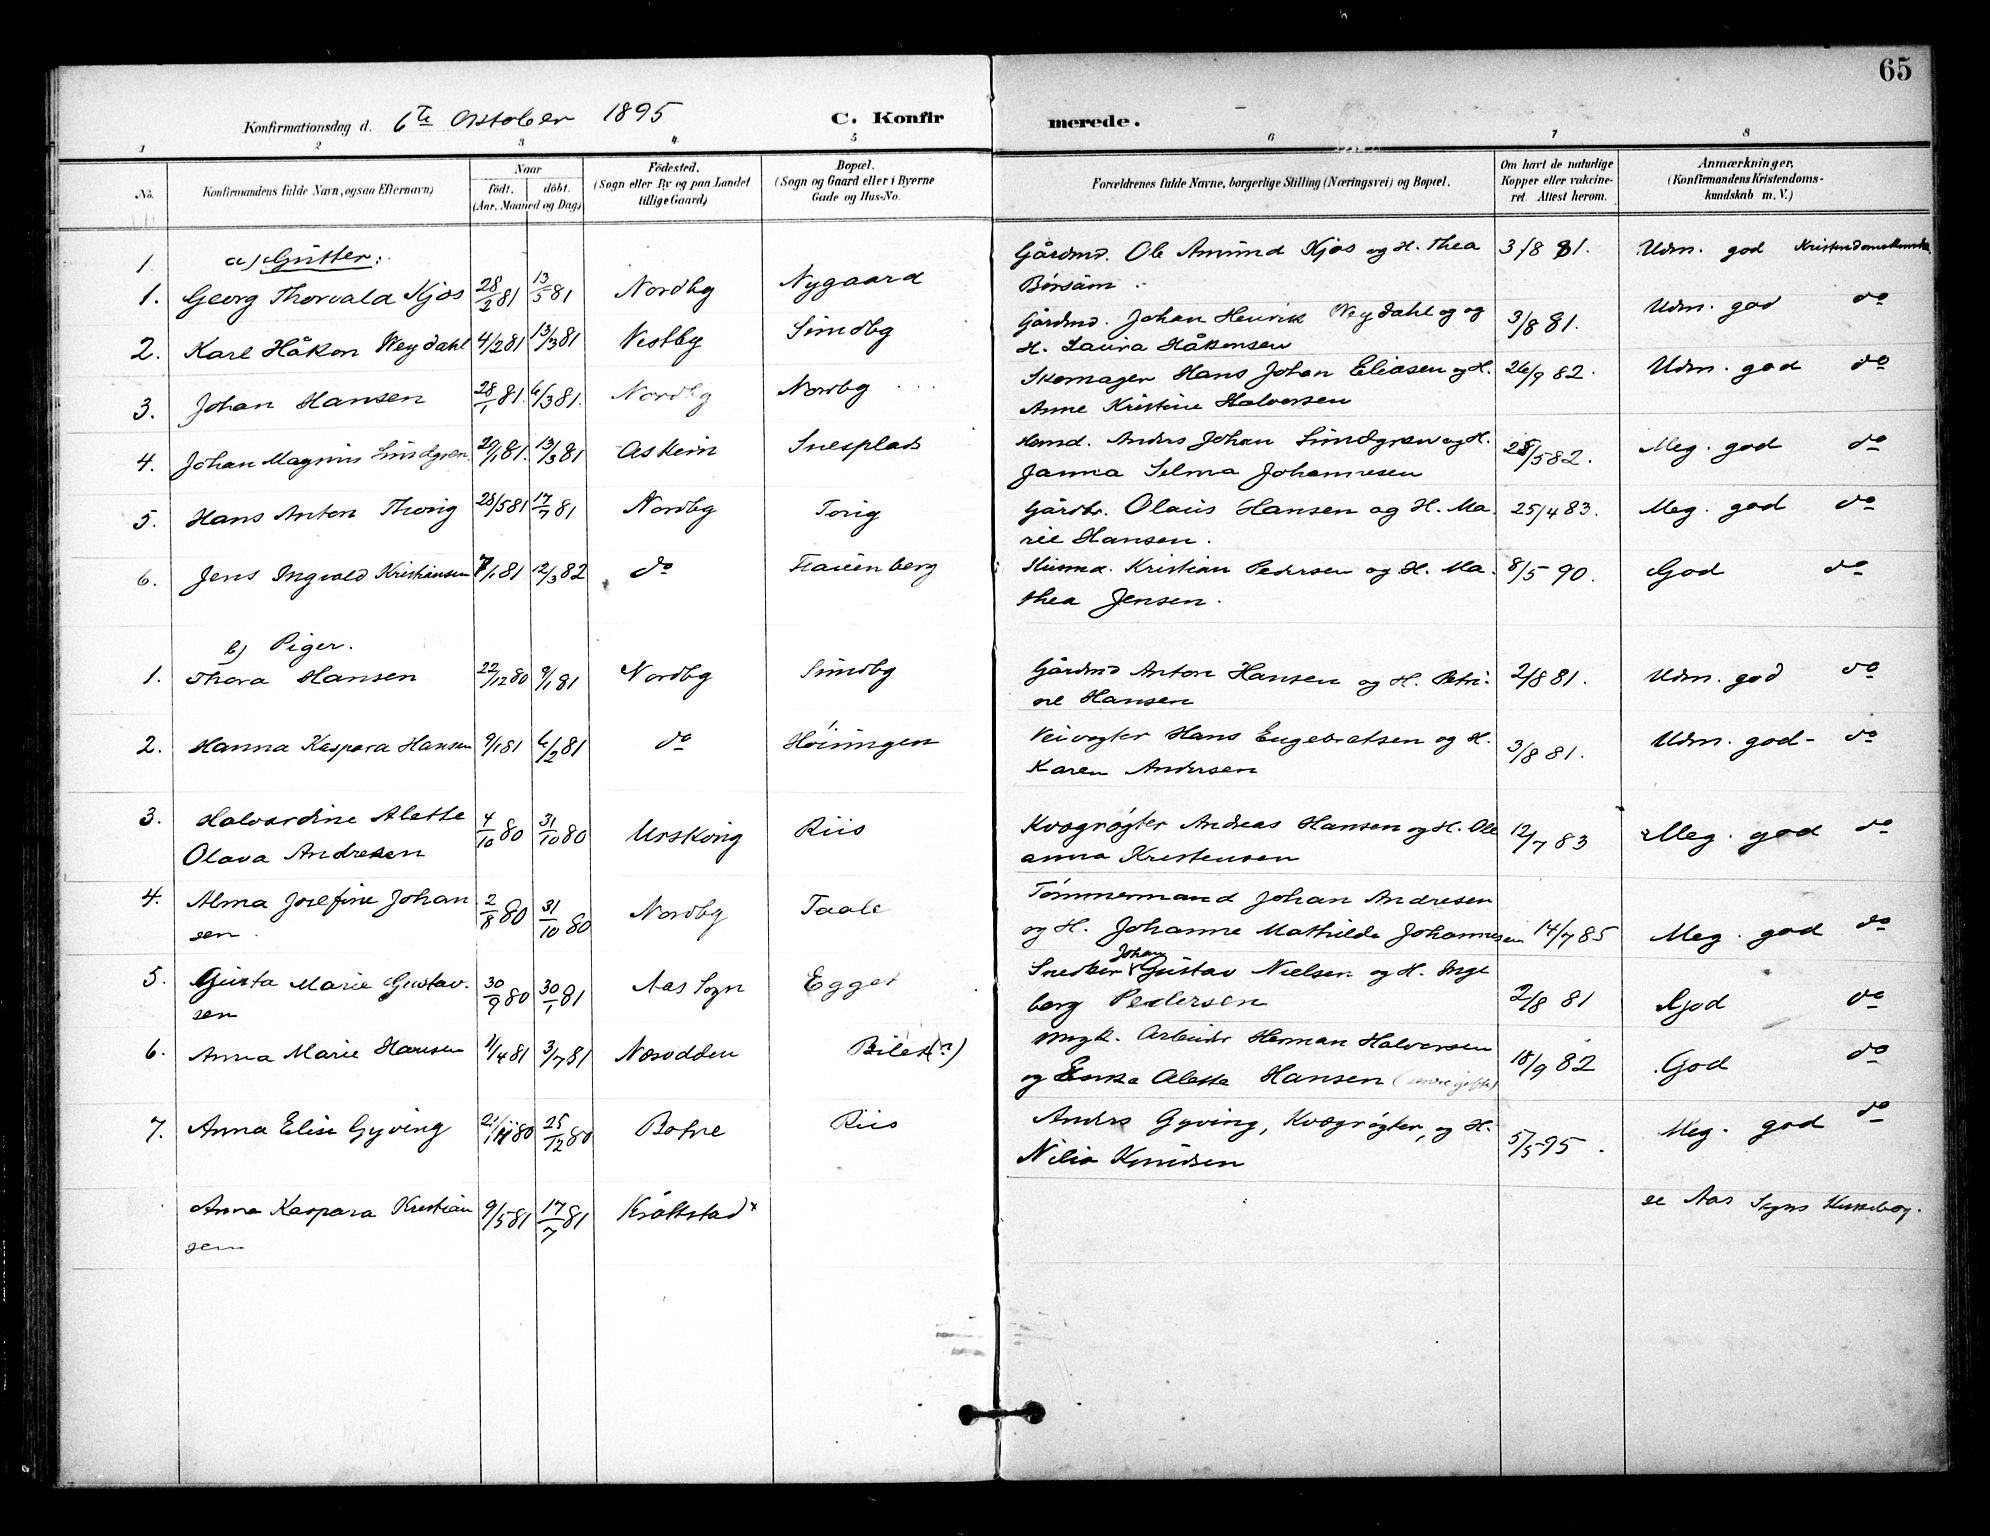 65
Konfirmationsdag d. 6te October 1895 C. Konfirmerede.
1 2 3 4 5 6 7 8
No. Konfirmandens fulde Navn, ogsaa Efternavn) Naar födt. döbt. (Aar, Maaned og Dag) Födested. (Sogn eller By og paa Landet tillige Gaard) Bopæl. (Sogn og Gaard eller i Byerne Gade og Hus-No. Forældrenes fulde Navne, borgerlige Stilling (Næringsvei) og Bopæl. Om havt de naturlige Kopper eller vakcineret. Attest herom. Anmærkninger. (Konfirmandens Kristendomskundskab m. V.)
1. a) Gutter:
1. Georg Thorvald Kjos 28/2 81 13/5 81 Nordby Nygaard Gårdmd. Ole Amund Kjos og H. Thea 3/8 81. Udm. god Kristendomskundsk.
Børsum
2. Karl Håkon Weydahl 4/2 81 13/3 81 Vestby Sundby Gårdmd. Johan Henrik Weydahl og og 3/8 81. Udm. god do
H. Laura Håkensen
3. Johan Hansen 28/1 81. 6/3 81. Nordby Nordby Skomager Hans Johan Eliasen og H. 26/9 82. Udm. god do
Anne Kristine Halvorsen
4. Johan Magnus Lindgren 20/1 81. 13/3 81 Askim Snesplads Husmd. Anders Johan Lindgren og H. 28/5 82. Meg. god do
Janna Selma Johannesen
5. Hans Anton Thorig 28/5 81 17/7 81 Nordby Torig Gårdbr. Olaus Hansen og H. Ma- 25/4 83. Meg. god do
rie Hansen.
6. Jens Ingvald Kristiansen 7/1 81 12/3 82 do Frauenberg Husmd. Kristian Pedersen og H. Ma- 8/5 90. God do
thea Jensen.
b) Piger.
1. Thora Hansen 22/12 80 9/1 81 Nordby Sundby Gårdmd Anton Hansen og H. Petri- 2/8 81. Udm. god do
ne Hansen
2. Hanna Kaspara Hansen 9/1 81 6/2 81 do Høiungen Veivogter Hans Engebretsen og H. 3/8 81. Udm. god- do
Karen Andersen
3. Halvardine Alette 4/10 80 31/10 80 Urskoug Riis Kvægrøgter Andreas Hansen og H. Ole 12/7 83 Meg. god do
Olava Andresen anna Kristensen
4. Alma Josefine Johan 2/8 80 31/10 80 Nordby Taale Tømmermand Johan Andresen
sen. og H. Johanne Mathilde Johannesen 14/7 85 Meg. god do
5. Gusta Marie Gustav- 30/9 80 30/1 81 Aas Sogn Egget Snedker Johan Gustav Nielsen og H. Inge 2/8 81 God do
sen borg Pedersen
6. Anna Marie Hansen 1/4 81 3/7 81 Næsodden Bilet(n) ungk. Arbeider Herman Halvorsen 18/9 82 God do
og Enke Alette Hansen
7. Anna Elise Gyving 21/11 80 25/12 80 Botne Riis Anders Gyving, Kvægrøgter, og H. 5/5 95. Meg. god do
Nilia Knudsen
Anna Kaspara Kristian 9/5 81 17/7 81 Kråkstad se Aas Sogns Kirkebog.
sen